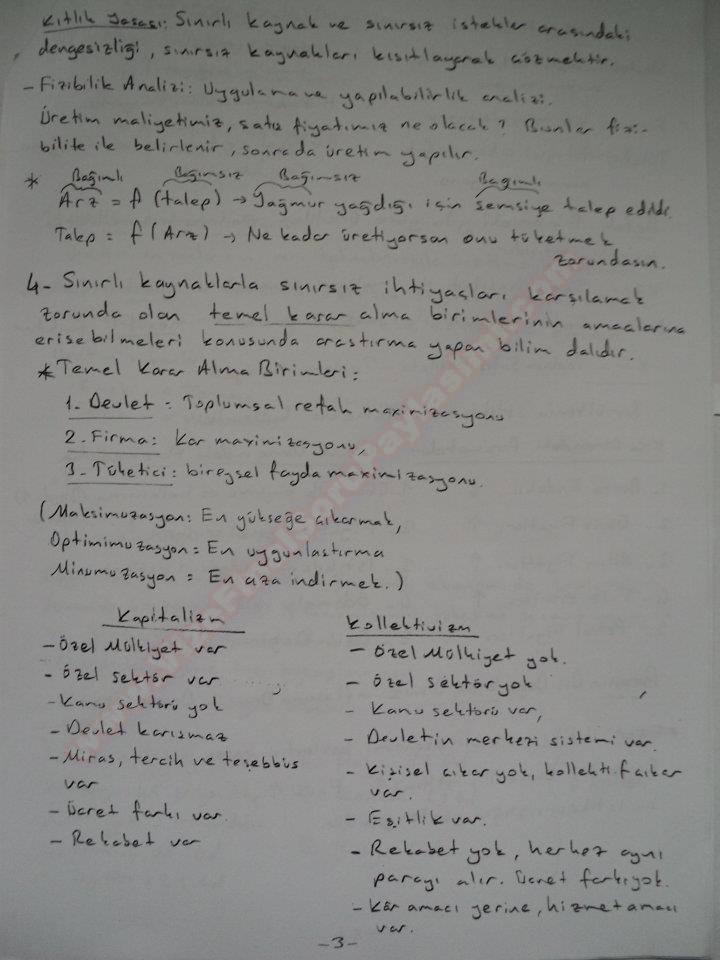 Kıtlık Yasası: Sınırlı kaynak ve sınırsız istekler arasındaki
dengesizliği, sınırsız kaynakları kısıtlayarak çözmektir.
- Fizibilik Analizi: Uygulama ve yapılabilirlik analizi.
Üretim maliyetimiz, satış fiyatımız ne olacak? Bunlar fizi-
bilite ile belirlenir, sonrada üretim yapılır.
* Bağımlı Bağımsız Bağımsız Bagımlı
Arz = f (talep) → Yağmur yağdığı için şemsiye talep edildi.
Talep = f (Arz) → Ne kadar üretiyorsan onu tüketmek
zorundasın.
4- Sınırlı kaynaklarla sınırsız ihtiyaçları karşılamak
zorunda olan temel karar alma birimlerinin amaçlarına
erisebilmeleri konusunda araştırma yapan bilim dalıdır.
* Temel Karar Alma Birimleri:
1. Devlet = Toplumsal refah maximizasyonu
2. Firma: Kar maximizasyonu,
3. Tüketici: bireysel fayda maximizasyonu.
(Maksimuzasyon: En yükseğe çıkarmak,
Optimimuzasyon = En uygunlaştırma
Minumuzasyon = En aza indirmek.)
Kapitalizm
- Özel Mülkiyet var
- Özel sektör var
- Kamu sektörü yok
- Devlet karışmaz
- Miras, tercih ve teşebbüs
var
- Ücret farkı var.
- Rekabet var
Kollektivizm
- Özel Mülkiyet yok.
- Özel sektör yok
- Kamu sektörü var,
- Devletin merkezi sistemi var.
- Kişisel çıkar yok, kollektif çıkar
var.
- Eşitlik var.
- Rekabet yok, herkez aynı
parayı alır. Ücret farkı yok.
- Kâr amacı yerine, hizmet amacı
var.
-3-